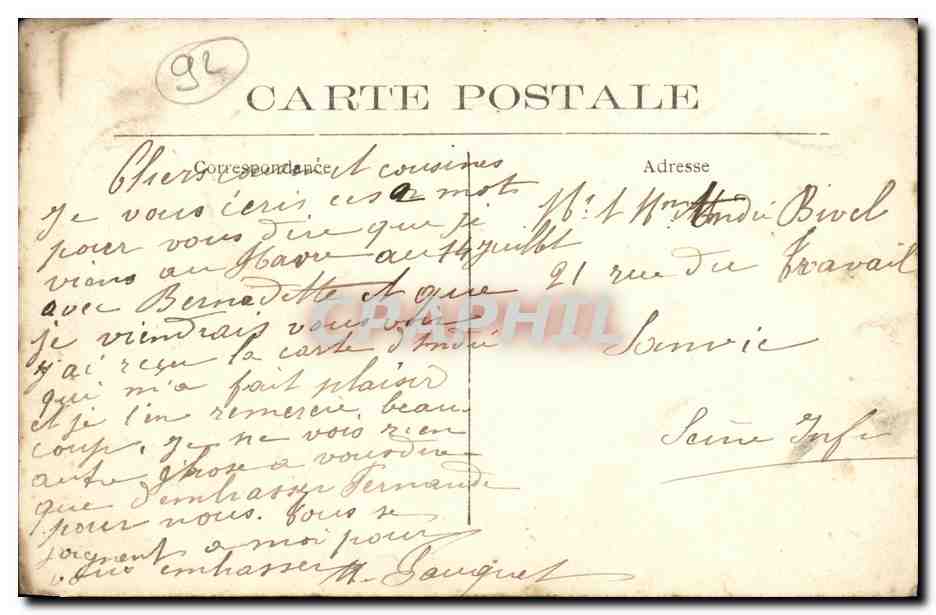 92
CARTE POSTALE
Correspondance
Adresse
Chers et cousines
Je vous écris ces 2 mots
pour vous dire que je
viens au Havre au 14 juillet
avec Bernadette et que
je viendrais vous voir
j'ai reçu la carte d'André
qui m'a fait plaisir
et je l'en remercie beau
coup. Je ne vois rien
autre chose a vous dire
que d'embrasser Fernande
pour nous. Tous se
joignent a moi pour
vous embrasser
Mr. & Mme André Bivel
21 rue du Travail
Sanvic
Seine Infre
CPAPHIL